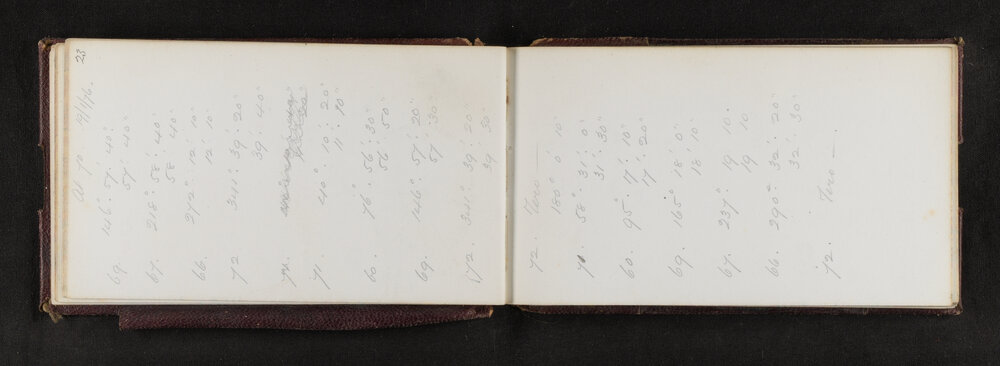 23
At 70 19/1/76.
69. 146°: 57': 40"
57': 40"
67. 218°: 58': 40"
58': 40"
66. 272°: 12': 10"
12': 10"
72 341°: 39': 20"
39': 40"
71. 40°: 10': 20"
11': 10"
60. 76°: 56': 30"
56': 50"
69. 146°: 57': 20"
57': 30"
72. 341°: 39': 20"
39': 30"
72. Zero —
180° 0' 10"
70. 58°: 31': 0"
31': 30"
60. 95°: 17': 10"
17': 20"
69. 165° 18': 0"
18': 10"
67. 237° 19' 10"
19' 10
66. 290° 32': 20"
32': 30"
72. Zero —